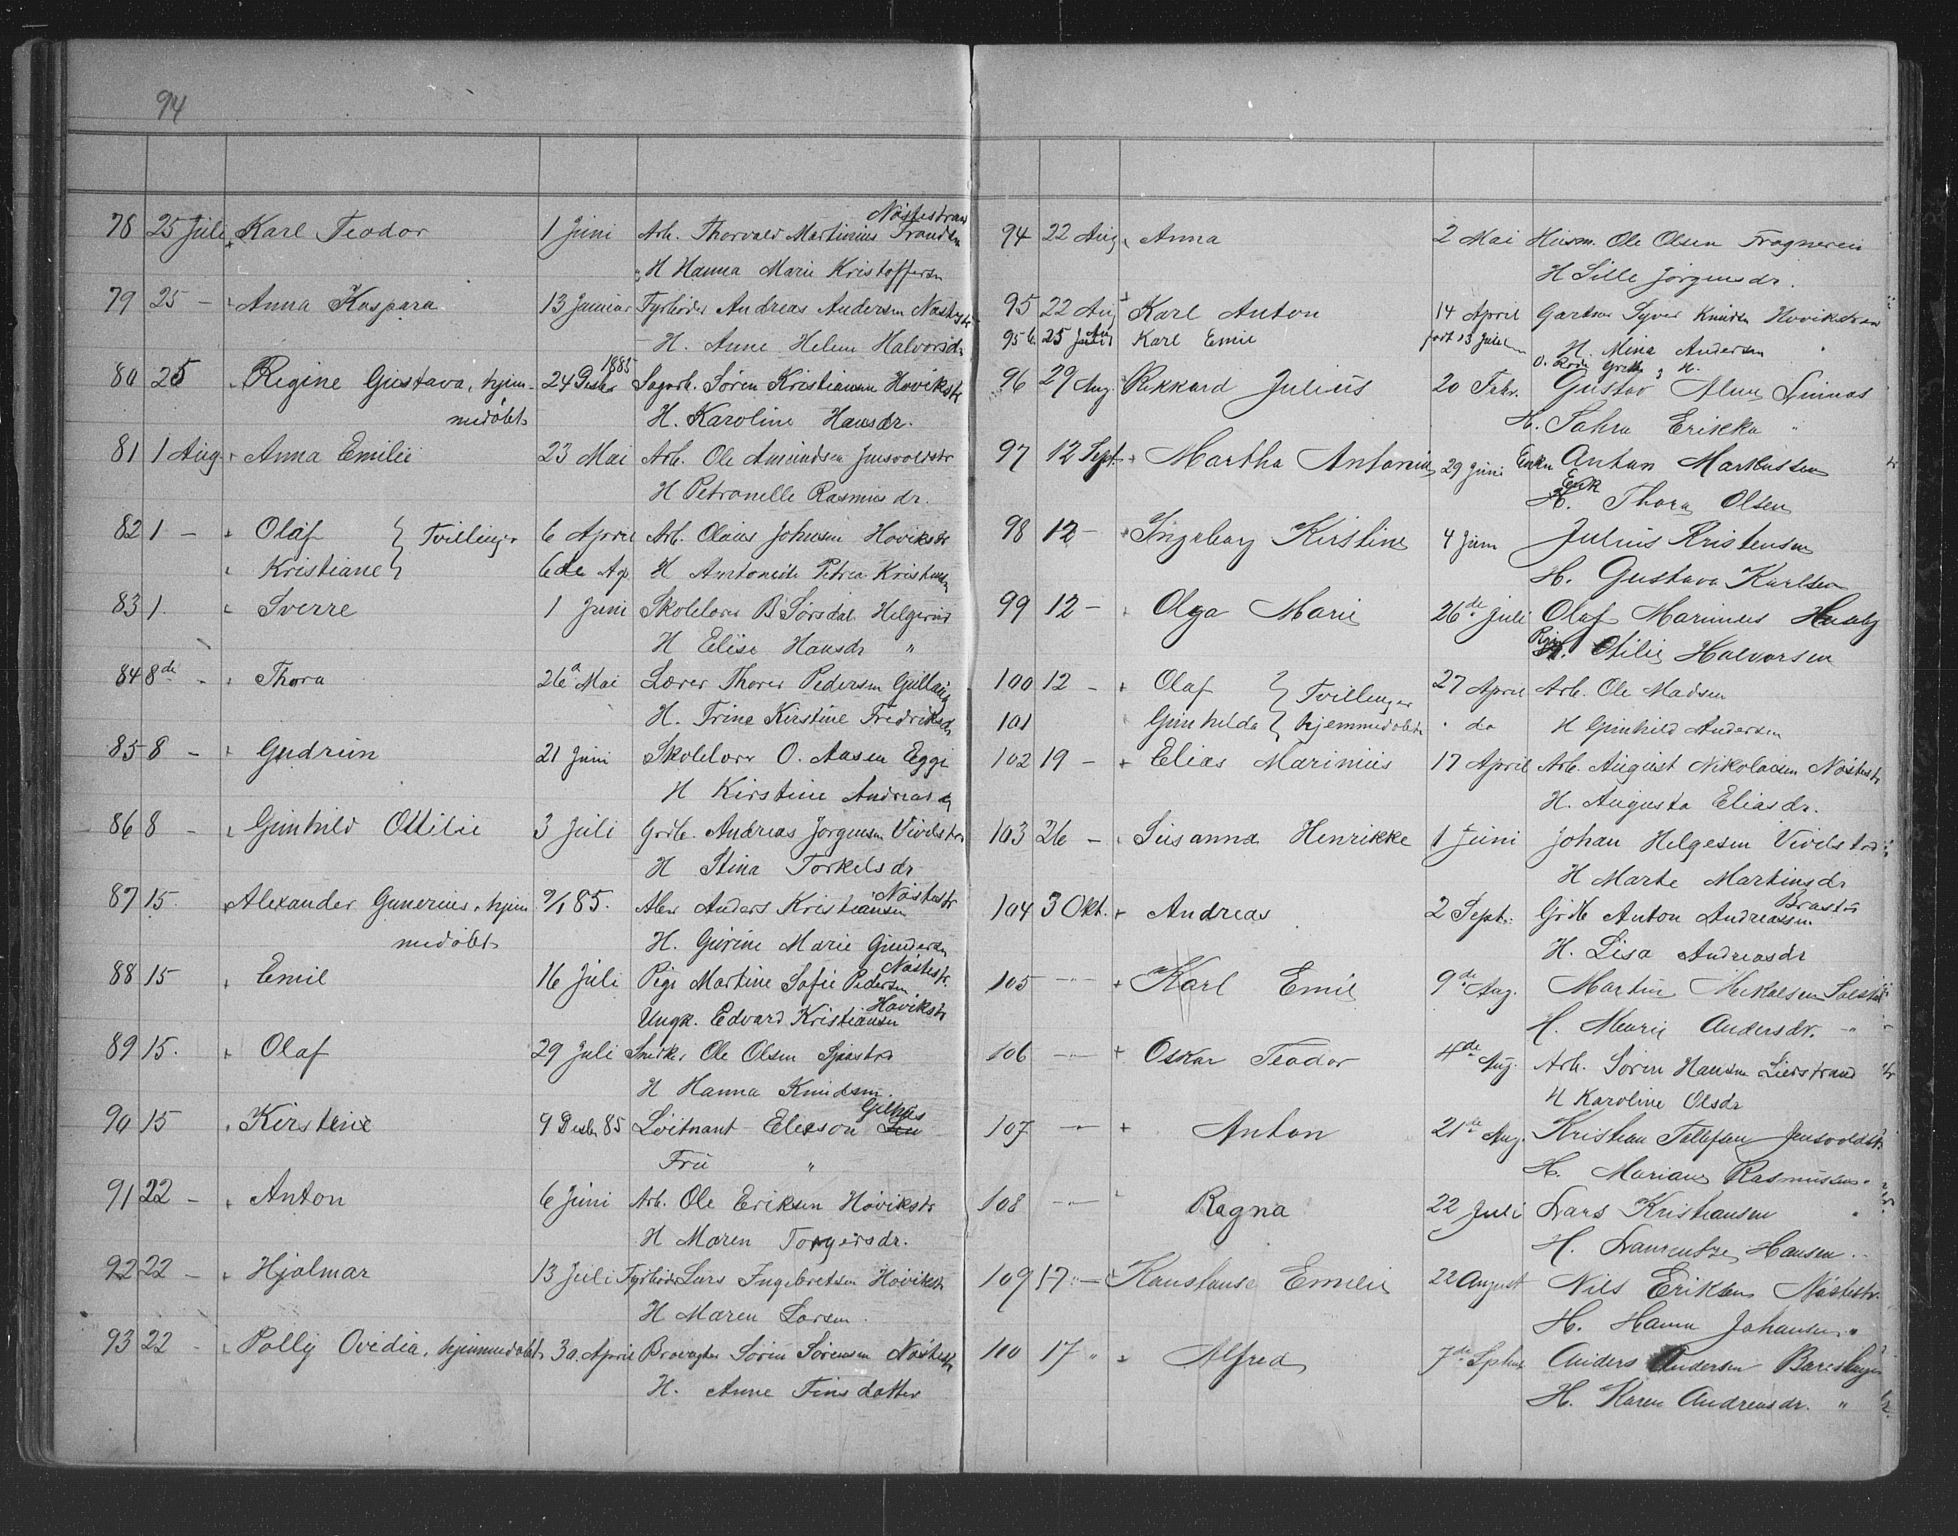 94
78 25 Juli Karl Teodor 1 Juni Arb. Thorvald Martinius Frandsen Nøstestrand
H Hanna Marie Kristoffersn
79 25 - Anna Kaspara 13 Januar Fyrbøder Andreas Andersen Nøstestr
H. Anne Helene Halvorsdr
80 25 Regine Gustava, hjem- 24 Desbr 1885 Sagarb. Søren Kristiansen Hovikstr
medøbt H. Karoline Hansdr.
81 1 Aug Anna Emilie 23 Mai Arb. Ole Amundsen Junsvoldstr
H Petronelle Rasmusdr.
82 1 - Olaf } Tvillinger 6 April Arb. Olaus Johnsen Hovikstr
Kristiane } 6de Ap H Antonette Petrea Kristensen
83 1. Sverre 1 Juni Skolelærer B Sørsdal Helgerud
H Elise Hansdr "
84 8de - Thora 26 Mai Lærer Thorer Pedersen Gullaug
H. Trine Kirstine Fredriksdr
85 8 - Gudrun 21 Juni Skolelærer O. Aasen Egge
H Kirstine Andreasdr
86 8 - Gunhild Ottilie 3 Juli Grdb. Andreas Jørgensen Vivelstad
H Stina Torkelsdr
87 15. Alexander Gunerius, hjem 9/1 85. Anders Kristiansen Nøstestr
medøbt H. Gurine Marie Gundersen
88 15 Emil 16 Juli Pige Martine Sofie Pedersen Nøstestr.
Ungk. Edvard Kristiansen Hovikstr
89 15. Olaf 29 Juli Snedker Ole Olsen
H Hanna Knudsen.
90 15 Kirstine 9 Desbr 85 Løitnant Elieson Gilhus
Frü "
91 22 - Anton 6 Juni Arb. Ole Eriksen Høvikstr
H Maren Torgersdr.
92 22 - Hjalmar 13 Juli Fyrbøder Lars Ingebretsen Høvikstr
H Maren Larsen.
93 22 - Polly Ovidia, hjemmedøbt 30 April Brovagter Søren Sørensen Nøstestr
H. Anne Finsdatter
94 22 Aug Anna 2 Mai Husm. Ole Olsen Frogner
H Sille Jørgensdr.
95 22 Aug Karl Anton 14 April Gartner Syver Knudsen Hovikstran
95 b. 25 Juli Karl Emil født 13 Juli H. Mina Andersen "
96 29 Aug. Rikkard Julius 20 Febr. Gustav Linnæs
H. Sahra Erikka "
97 12 Sept. Martha Antonie 29 Juni Enkem Anton Markussen
H. Enk Thora Olsen
98 12 - Ingeborg Kirstine 4 Juni Julius Kristensen
H. Gustava Karlsen
99 12 - Olga Marie 26de Juli Olaf Marinius Huseby
H. Otilie Halvorsen
100 12 - Olaf } Tvillinger 27 April Arb. Ole Madsen
101 Gunhilda } hjemmedøbte do H Gunhild Andersen
102 19 - Elias Marinius 17 April Arb. August Nikolaisen Nøstestr
H. Augusta Eliasdr.
103 26 - Susanna Henrikke 1 Juni Johan Helgesen Vivelstad
H Marte Martinsdr
104 3 Okt. Andreas 2 Sept. Grdb Anton Andreassen
H. Lisa Andreasdr
105 - Karl Emil 9de Aug. Martin Mikalsen
H. Marie Andersdr. "
106 - Oskar Teodor 4de Aug. Arb. Søren Hansen Lierstrand
H Karoline Olsdr
107 - Anton 21de Aug. Kristian Tollefsen Junsvoldstr
H. Mariane Rasmussen
108 - Ragna 22 Juli Lars Kristiansen "
H. Laurentze Hansen
109 17 - Konstanse Emelie 22 August Nils Eriksen Nøstestr.
H. Hanna Johansen "
110 17 " Alfred 7de Septbr Anders Andersen
H. Karen Andreasdr. "